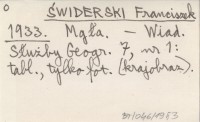 ŚWIDERSKI Franciszek
1933. Mgła. — Wiad.
Służby Geogr. 7, nr 1:
tabl., tylko fot. (krajobraz).